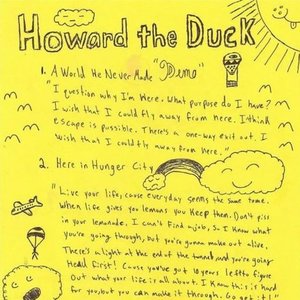 Howard the Duck
1. A World He Never Made "Demo"
"I question why I'm Here. What purpose do I have?
I wish that I could fly away from here. I think
escape is possible. There's a one-way exit out. I
wish that I could fly away from here."
2. Here in Hunger City
"Live your life, cause everyday seems the same tome.
When life gives you lemons you keep them. Don't piss
in your lemonade. I can't find a job, so I know what
you're going through, but you're gonna make out alive.
There's a light at the end of the tunnel and you're going
Head first! Cause you've got 10 years left to figure
out what your life is all about. I know this is hard
for you, but you can make it through. Go get it!"